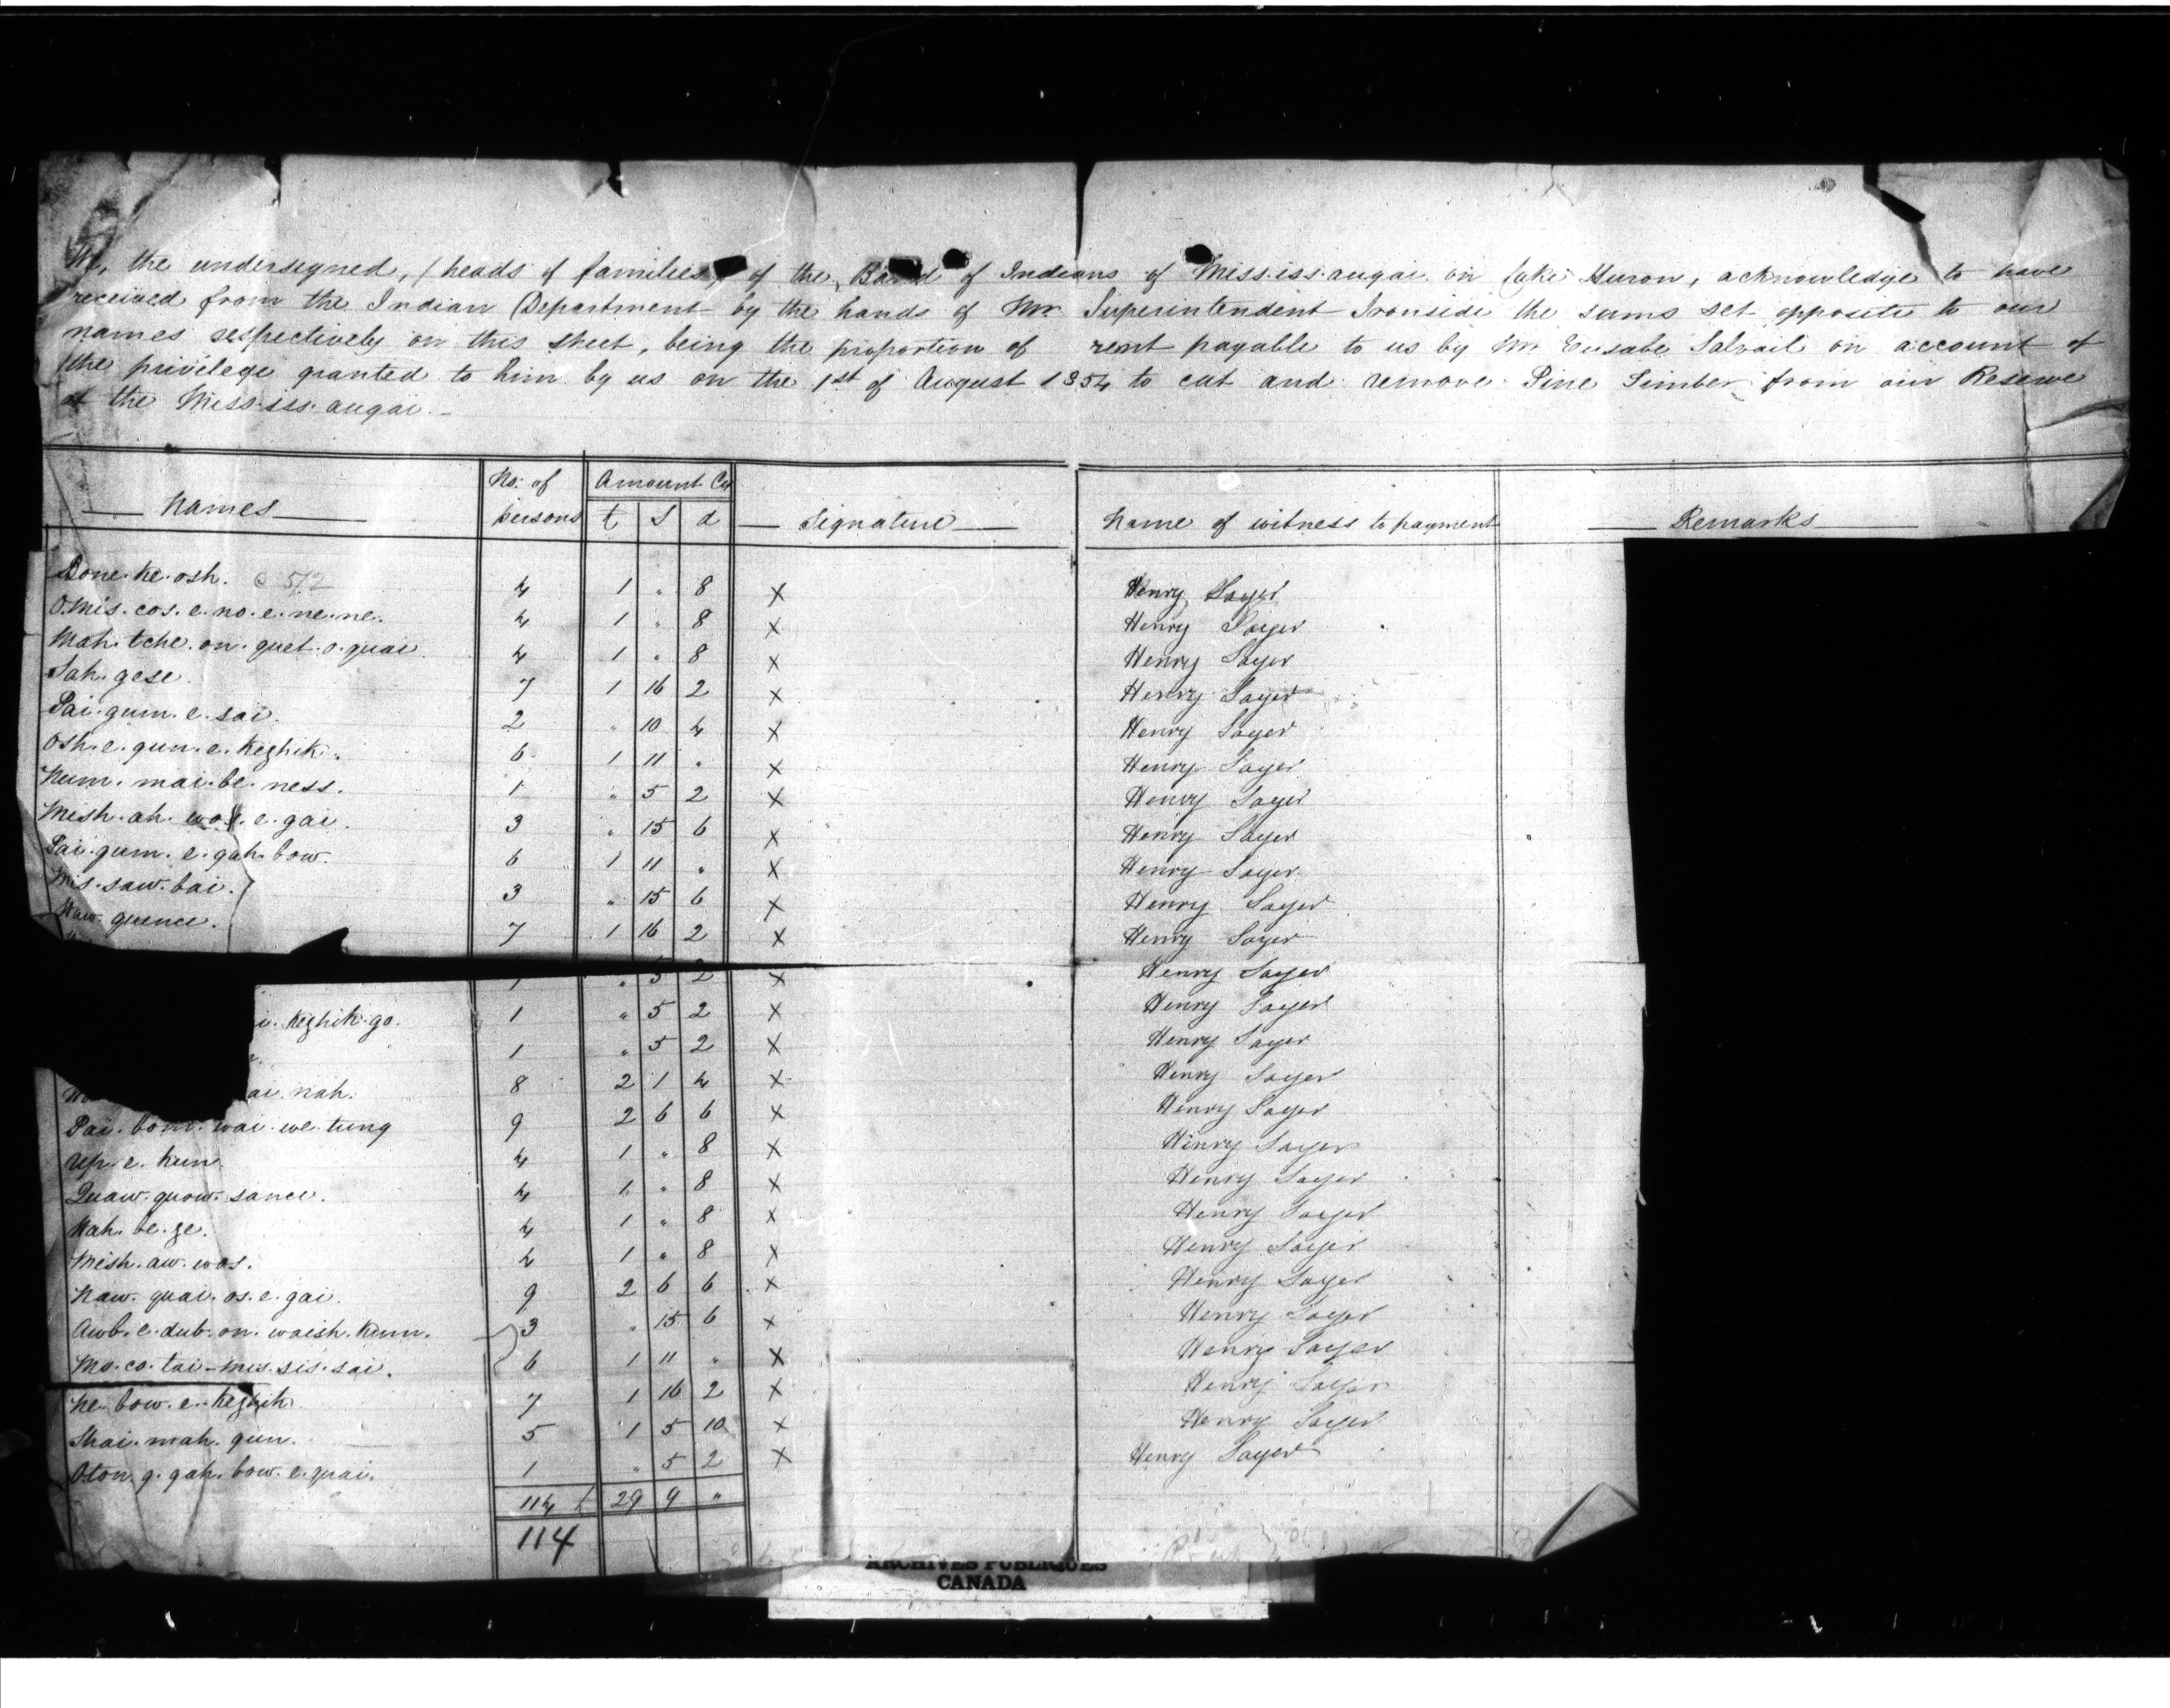 We, the undersigned, (heads of families) of the Band of Indians of Mississaugai on Lake Huron, acknowledge to have
received from the Indian Department by the hands of Mr Superintendent Ironside the sums set opposite to our
names respectively on this sheet, being the proportion of rent payable to us by Mr Eusabe Salvail on account of
the privilege granted to him by us on the 1st of August 1854 to cut and remove Pine Timber from our Reserve
at the Mississaugai.
Names No. of persons Amount Cy £ S d Signature Name of witness to payment Remarks
Bone.ke.osh. 4 1 " 8 X Henry Sayer
O.mis.cos.e.no.e.ne.ne. 4 1 " 8 X Henry Sayer
Mah.tche.on.quet.o.quai 4 1 " 8 X Henry Sayer
Sah.gese. 7 1 16 2 X Henry Sayer
Pai.gum.e.sai. 2 " 10 4 X Henry Sayer
Osh.e.gun.e.Kezhik. 6 1 11 " X Henry Sayer
Num.mai.be.ness. 1 " 5 2 X Henry Sayer
Mesh.ah. e.gai. 3 " 15 6 X Henry Sayer
Pai.gum.e.gah.bow. 6 1 11 " X Henry Sayer
Mis.saw.bai. 3 " 15 6 X Henry Sayer
Naw.quence. 7 1 16 2 X Henry Sayer
1 " 5 2 X Henry Sayer
i.Kezhik.go. 1 " 5 2 X Henry Sayer
1 " 5 2 X Henry Sayer
ai.nah. 8 2 1 4 X Henry Sayer
Pai.bom.wai.we.tung 9 2 6 6 X Henry Sayer
Up.e.kun 4 1 " 8 X Henry Sayer
Quaw.quow.sance. 4 1 " 8 X Henry Sayer
Nah.be.ge. 4 1 " 8 X Henry Sayer
Mesh.aw.wos. 4 1 " 8 X Henry Sayer
Naw.quai.os.e.gai. 9 2 6 6 X Henry Sayer
Awb.e.dub.on.waish.kum. 3 " 15 6 X Henry Sayer
Mo.co.tai-mis.sis.sai. 6 1 11 " X Henry Sayer
Ne.bow.e.Kezhik 7 1 16 2 X Henry Sayer
Shai.mah.gun. 5 1 5 10 X Henry Sayer
gah.bow.e.quai. 1 " 5 2 X Henry Sayer
114 £ 29 9 "
114
ARCHIVES PUBLIQUES
CANADA